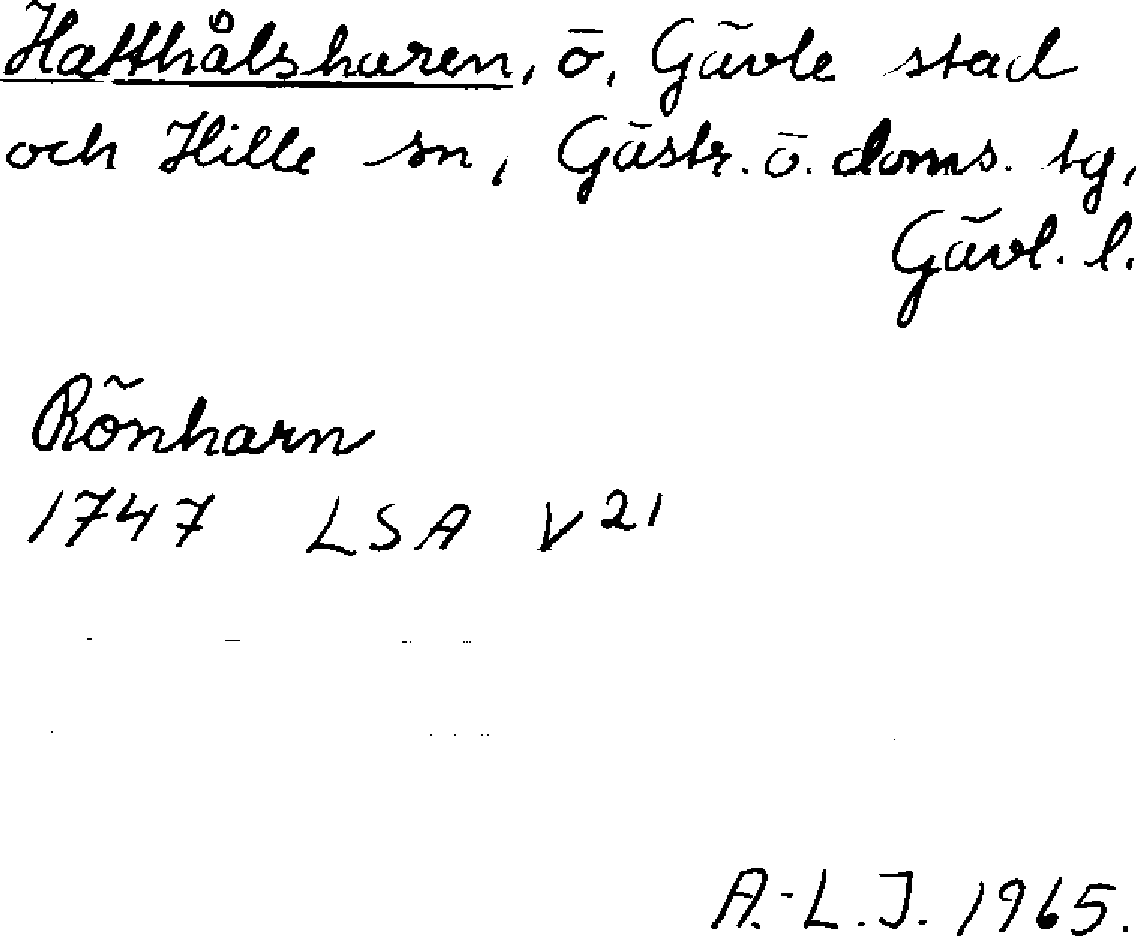 Hatthålsharen, ö, Gävle stad
och Hille sn, Gästr. ö. doms. tg,
Gävl. l.
Rönharn
1747 LSA V21
A.-L.J. 1965.